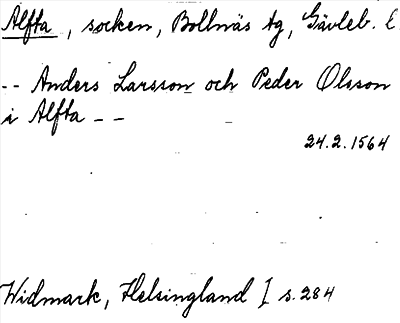 Alfta, socken, Bollnäs tg, Gävleb. l
-- Anders Larsson och Peder Olsson
i Alfta --
24.2.1564
Widmark, Helsingland I s. 284